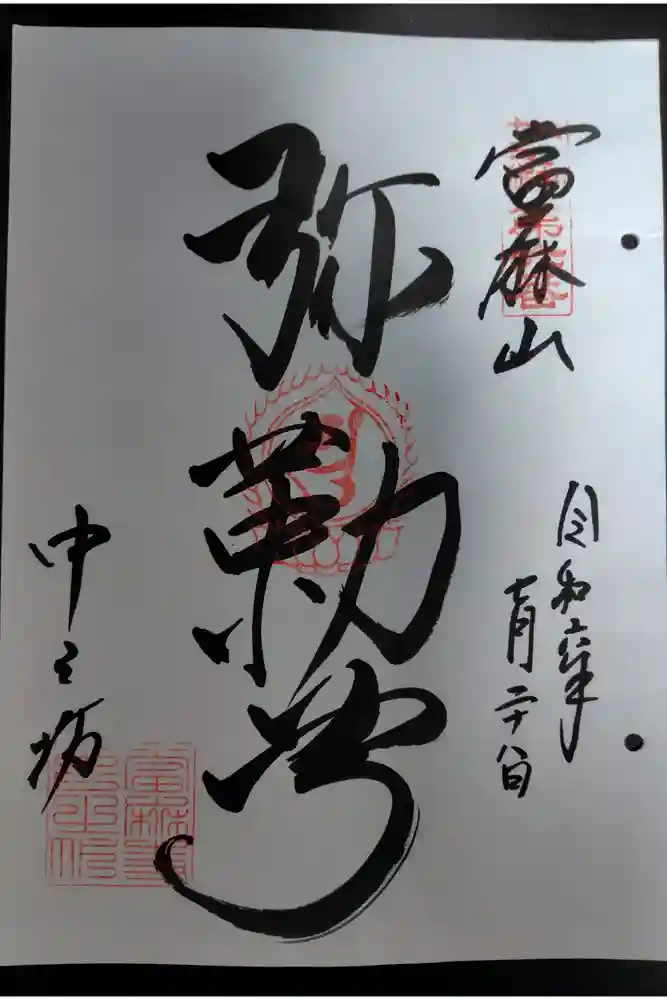 當麻山
令和六年
七月二十八日
弥勒尊
中之坊
當麻寺
中之坊